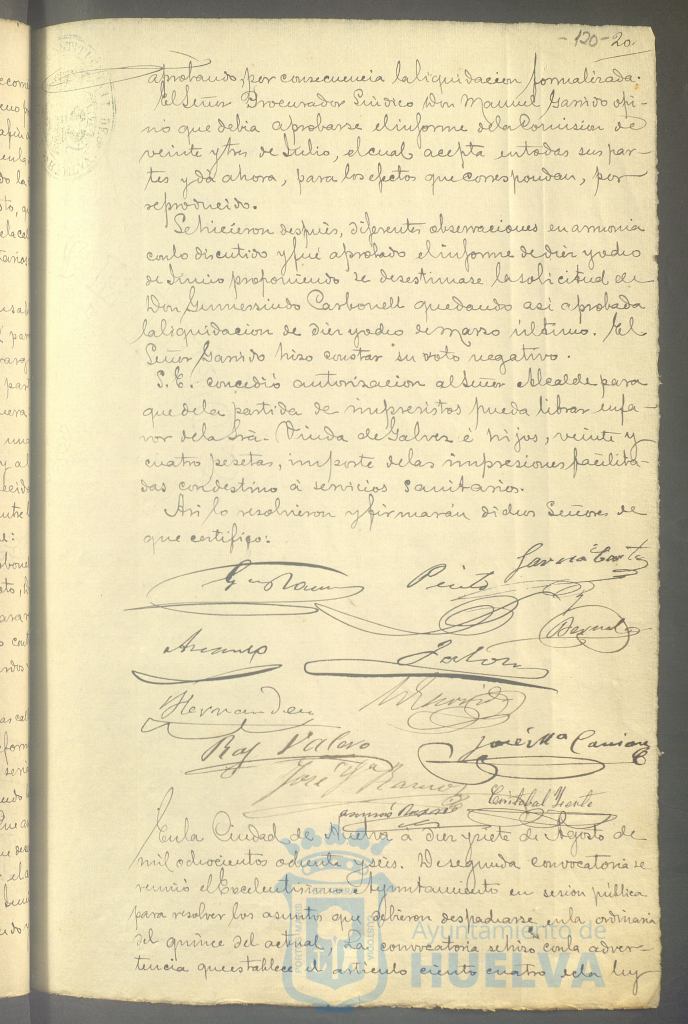 -120- 20
aprobando, por consecuencia la liquidacion formalizada.
El Señor Procurador Sindico Don Manuel Garrido opi-
nó que debia aprobarse el informe de la Comision de
veinte y tres de Julio, el cual acepta en todas sus par-
tes y dá ahora, para los efectos que correspondan, por
reproducido.
Se hicieron después, diferentes observaciones en armonia
con lo discutido y fué aprobado el informe de diez y ocho
de Junio proponiendo se desestimase la solicitud de
Don Gumersindo Carbonell quedando asi aprobada
la liquidacion de diez y ocho de marzo último. El
Señor Garrido hizo constar su voto negativo.
S. E. concedió autorizacion al Señor Alcalde para
que de la partida de imprevistos pueda librar en fa-
vor de la Srâ. Viuda de Galvez é hijos, veinte y
cuatro pesetas, importe de las impresiones facilita-
das con destino á servicios sanitarios.
Asi lo resolvieron y firmarán dichos Señores de
que certifico:
Garcia
Hernandez
Valero
José Mª
José Mª Ramos
Cristobal
En la Ciudad de Huelva á diez y siete de Agosto de
mil ochocientos ochenta y seis. De segunda convocatoria se
reunió el Excelentisimo Ayuntamiento en sesion pública
para resolver los asuntos que debieron despacharse en la ordinaria
del quince del actual, La convocatoria se hizo con la adver-
tencia que establece el artículo ciento cuatro de la ley
Ayuntamiento de
HUELVA